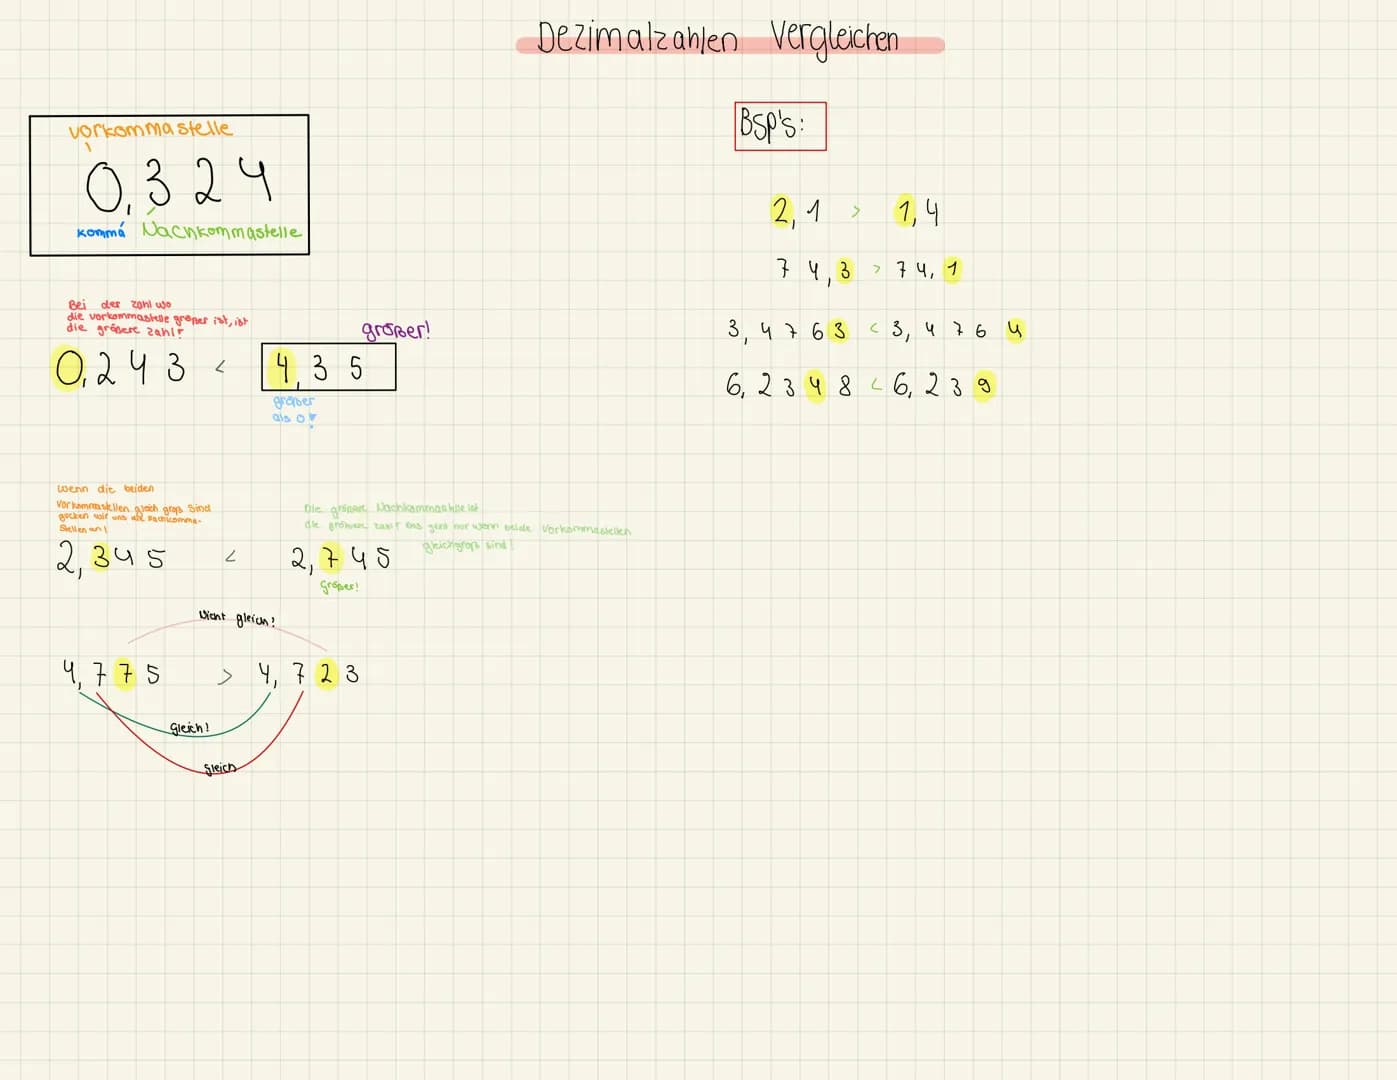 Dezimalzahlen Vergleichen
vorkommastelle
0,324
komma Nachkommastelle
Bei der zahl wo
die vorkommastelle größer ist, ist
die größere zahl!
größer!
0,243 < 4,35
größer
als 0!
wenn die beiden
vorkommastellen gleich groß sind
gucken wir uns die Nachkomma-
stellen an!
Die größere Nachkommastelle ist
die größere zahl! Das geht nur wenn beide Vorkommastellen
gleichgroß sind!
2,345 < 2,745
Größer!
Nicht gleich!
4,775 > 4,723
Gleich!
gleich
BSP's:
2,1 > 1,4
74,3 > 74,1
3,4763 < 3,4764
6,2348 < 6,239